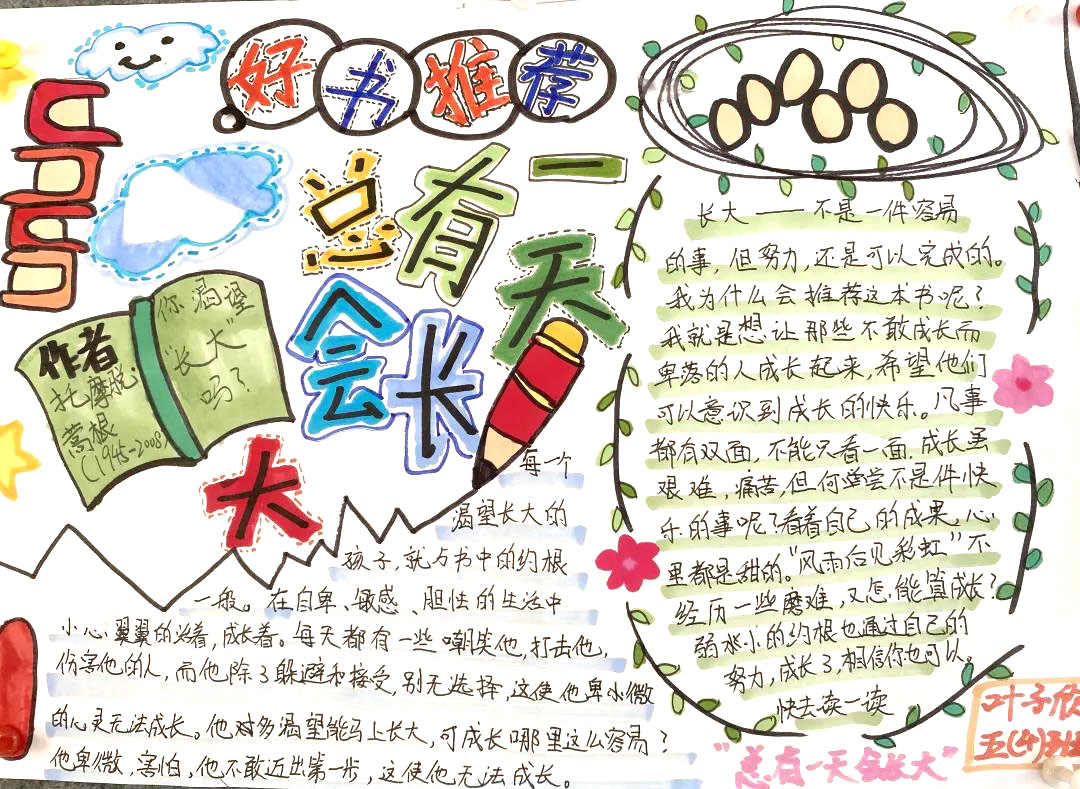 好书推荐
总有一天
会长
大
作者
托摩脱·
蒿根
(1945-2008)
你渴望
“长大”
吗？
每一个
渴望长大的
孩子，就与书中的约根
一般。在自卑、敏感、胆怯的生活中
小心翼翼的活着，成长着。每天都有一些嘲笑他，打击他，
伤害他的人，而他除了躲避和接受，别无选择，这使他卑小微
的心灵无法成长。他对多渴望能马上长大，可成长哪里这么容易？
他卑微，害怕，他不敢迈出第一步，这使他无法成长。
长大——不是一件容易
的事，但努力，还是可以完成的。
我为什么会推荐这本书呢？
我就是想让那些不敢成长而
卑落的人成长起来，希望他们
可以意识到成长的快乐。凡事
都有双面，不能只看一面，成长虽
艰难，痛苦，但何尝不是件快
乐的事呢？看着自己的成果，心
里都是甜的。“风雨后见彩虹”不
经历一些磨难，又怎能算成长？
弱小的约根也通过自己的
努力，成长了，相信你也可以。
快去读一读
“总有一天会长大”
叶子欣
五(4)班